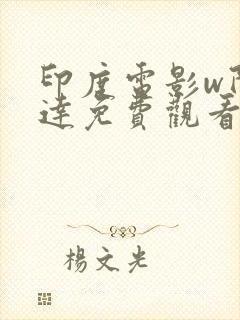 印度電影w
達免費觀看
楊文光